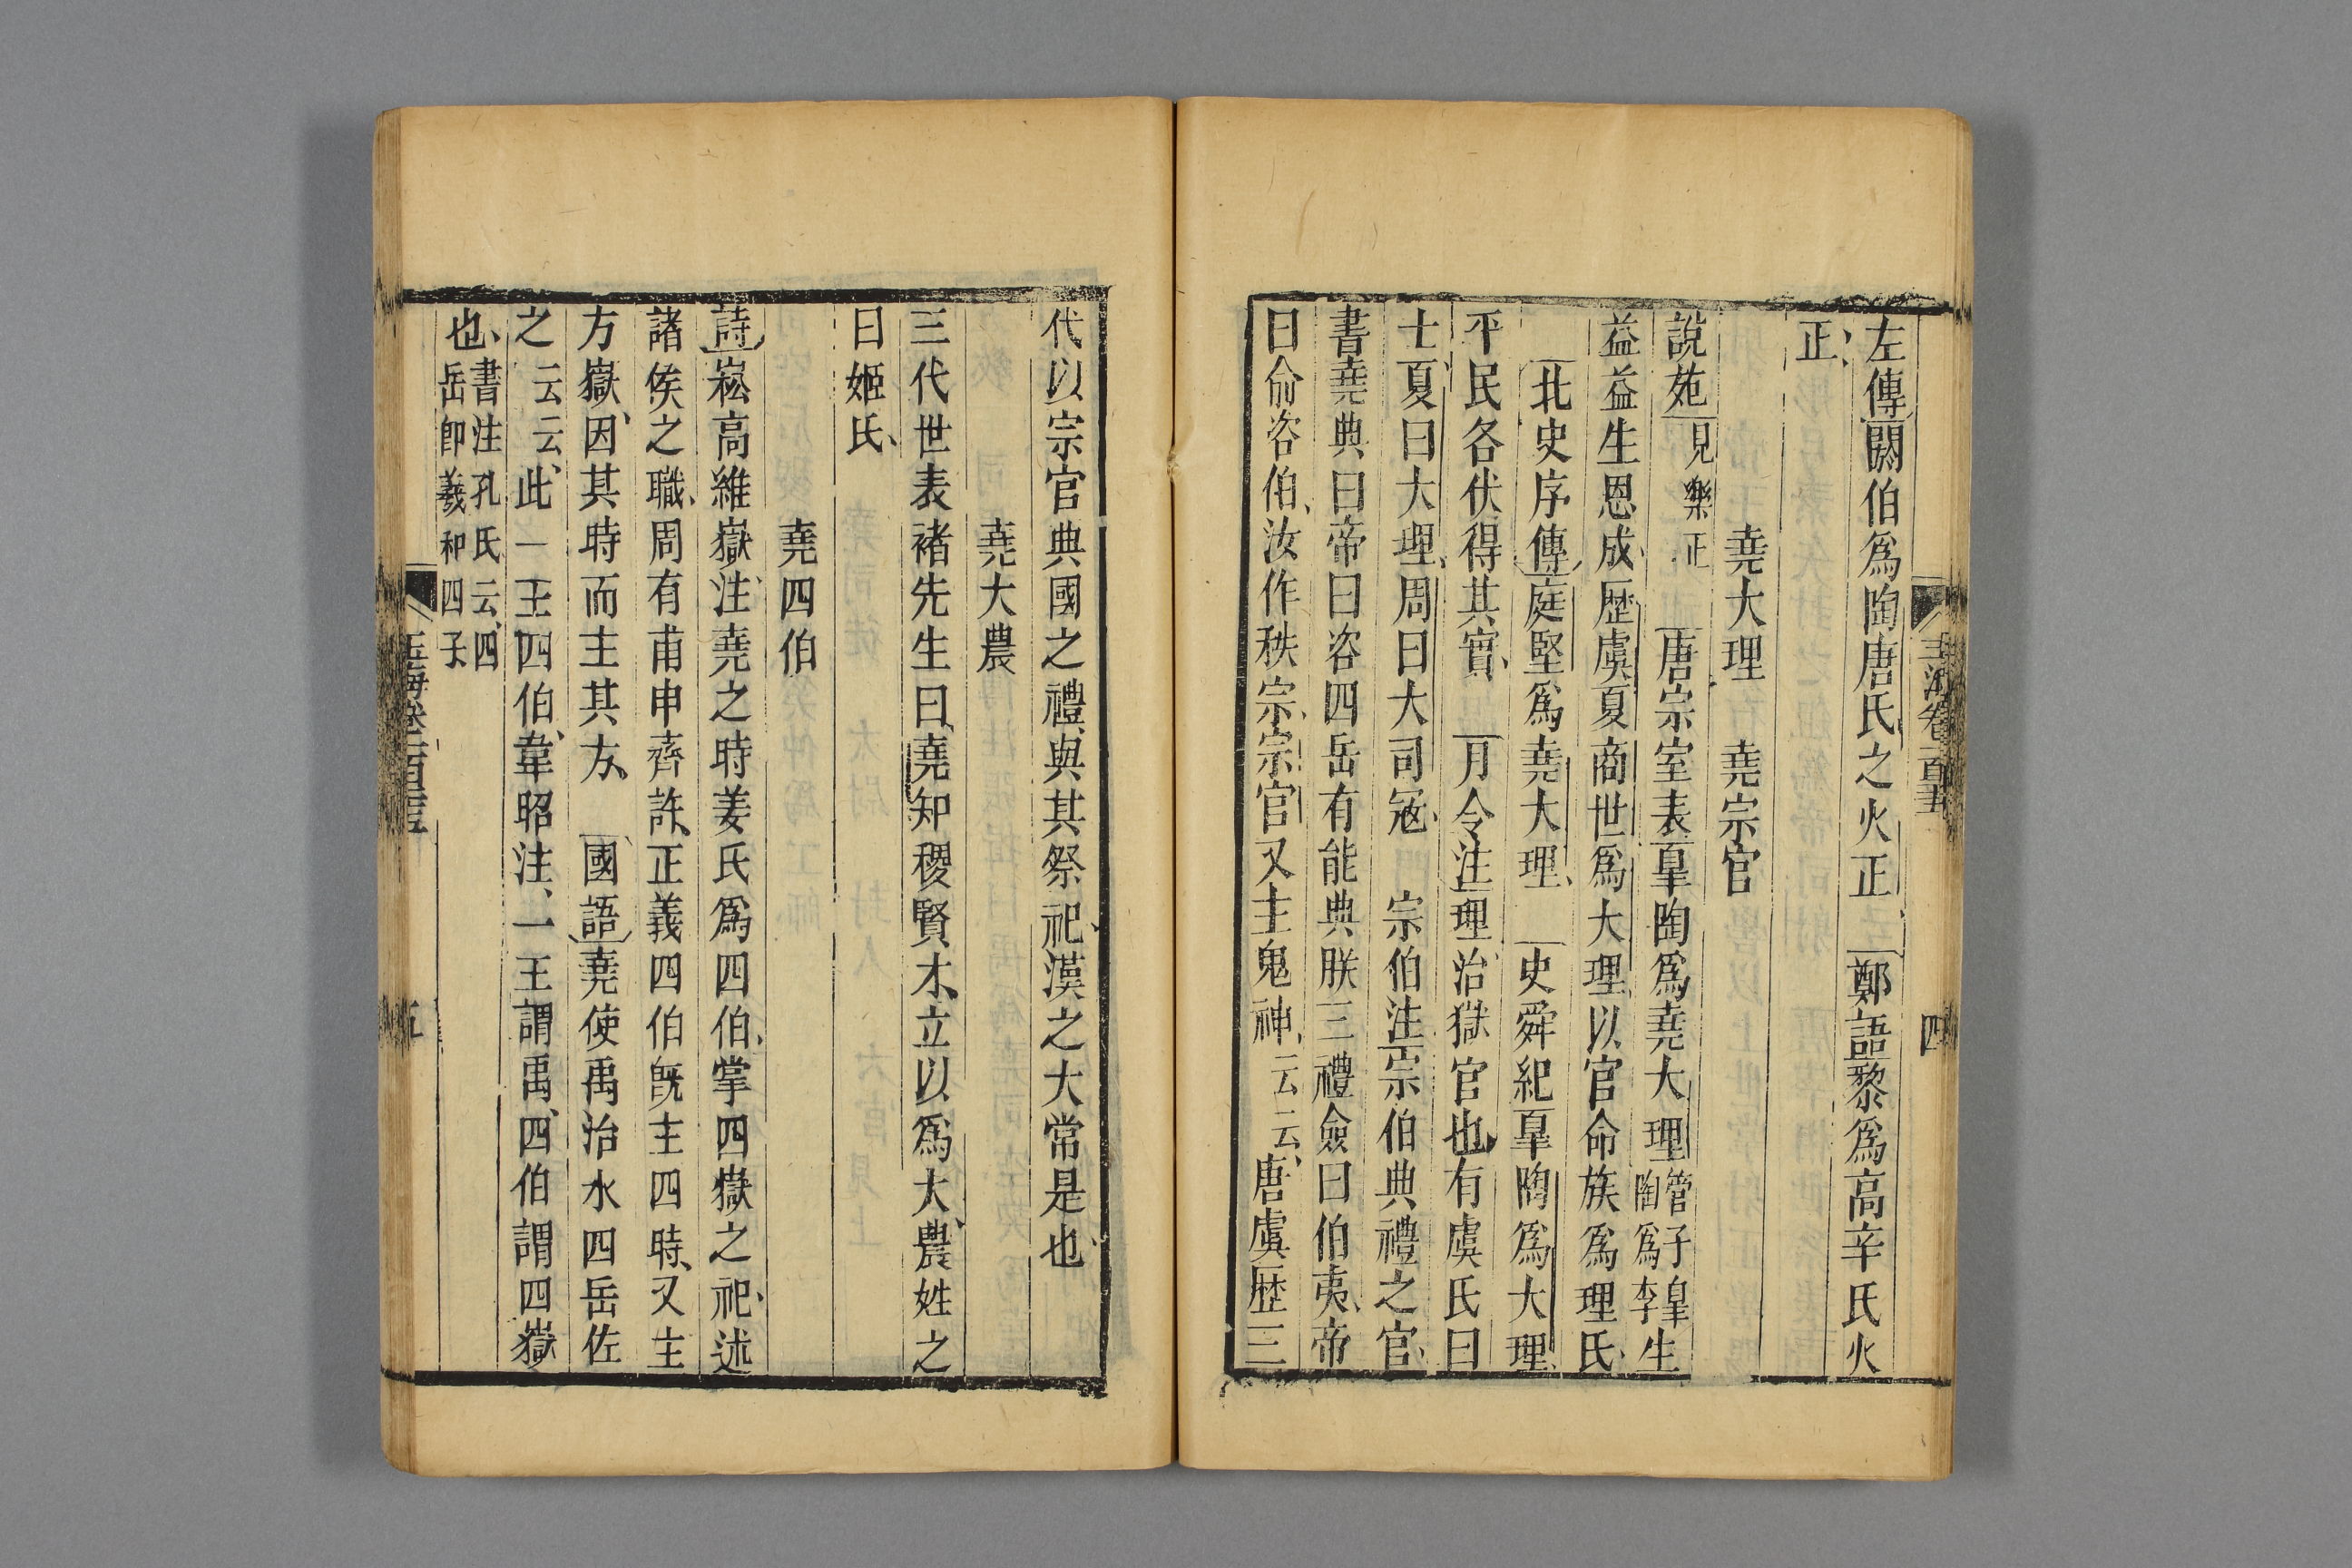 玉海卷一百二十五
四
左傳閼伯爲陶唐氏之火正 鄭語黎爲高辛氏火
正
堯大理 堯宗官
說苑見樂正 唐宗室表臯陶爲堯大理管子皐陶爲李生
益益生恩成歷虞夏商世爲大理以官命族爲理氏
北史序傳庭堅爲堯大理 史舜紀臯陶爲大理
平民各伏得其實 月令注理治獄官也有虞氏曰
士夏曰大理周曰大司寇 宗伯注宗伯典禮之官
書堯典曰帝曰咨四岳有能典朕三禮僉曰伯夷帝
曰俞咨伯汝作秩宗宗官又主鬼神云云唐虞歷三
代以宗官典國之禮與其祭祀漢之大常是也
堯大農
三代世表褚先生曰堯知稷賢才立以爲大農姓之
曰姬氏
堯四伯
詩崧高維嶽注堯之時姜氏爲四伯掌四嶽之祀述
諸侯之職周有甫申齊許正義四伯旣主四時又主
方嶽因其時而主其方 國語堯使禹治水四岳佐
之云云此一王四伯韋昭注一王謂禹四伯謂四嶽
也書注孔氏云四岳卽羲和四子
五